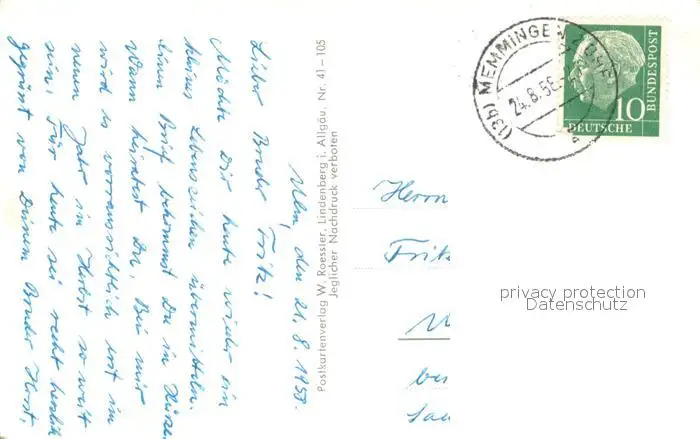 Ulm, den 21.8.1958.
Lieber Bruder Fritz!
Möchte Dir heute wieder ein
kleines Lebenszeichen übermitteln.
Einen Brief bekommst Du in Kürze.
Wann heiratest Du. Bei mir
wird es vorraussichtlich erst im
neuen Jahr im Herbst so weit
sein. Für heute sei recht herzlich
gegrüsst von Deinem Bruder Horst.
Postkartenverlag W. Roessler, Lindenberg i. Allgäu, Nr. 41-105
Jeglicher Nachdruck verboten
(13b) MEMMINGEN
24.8.58
10
DEUTSCHE
BUNDESPOST
Herrn
Fritz
bei
privacy protection
Datenschutz